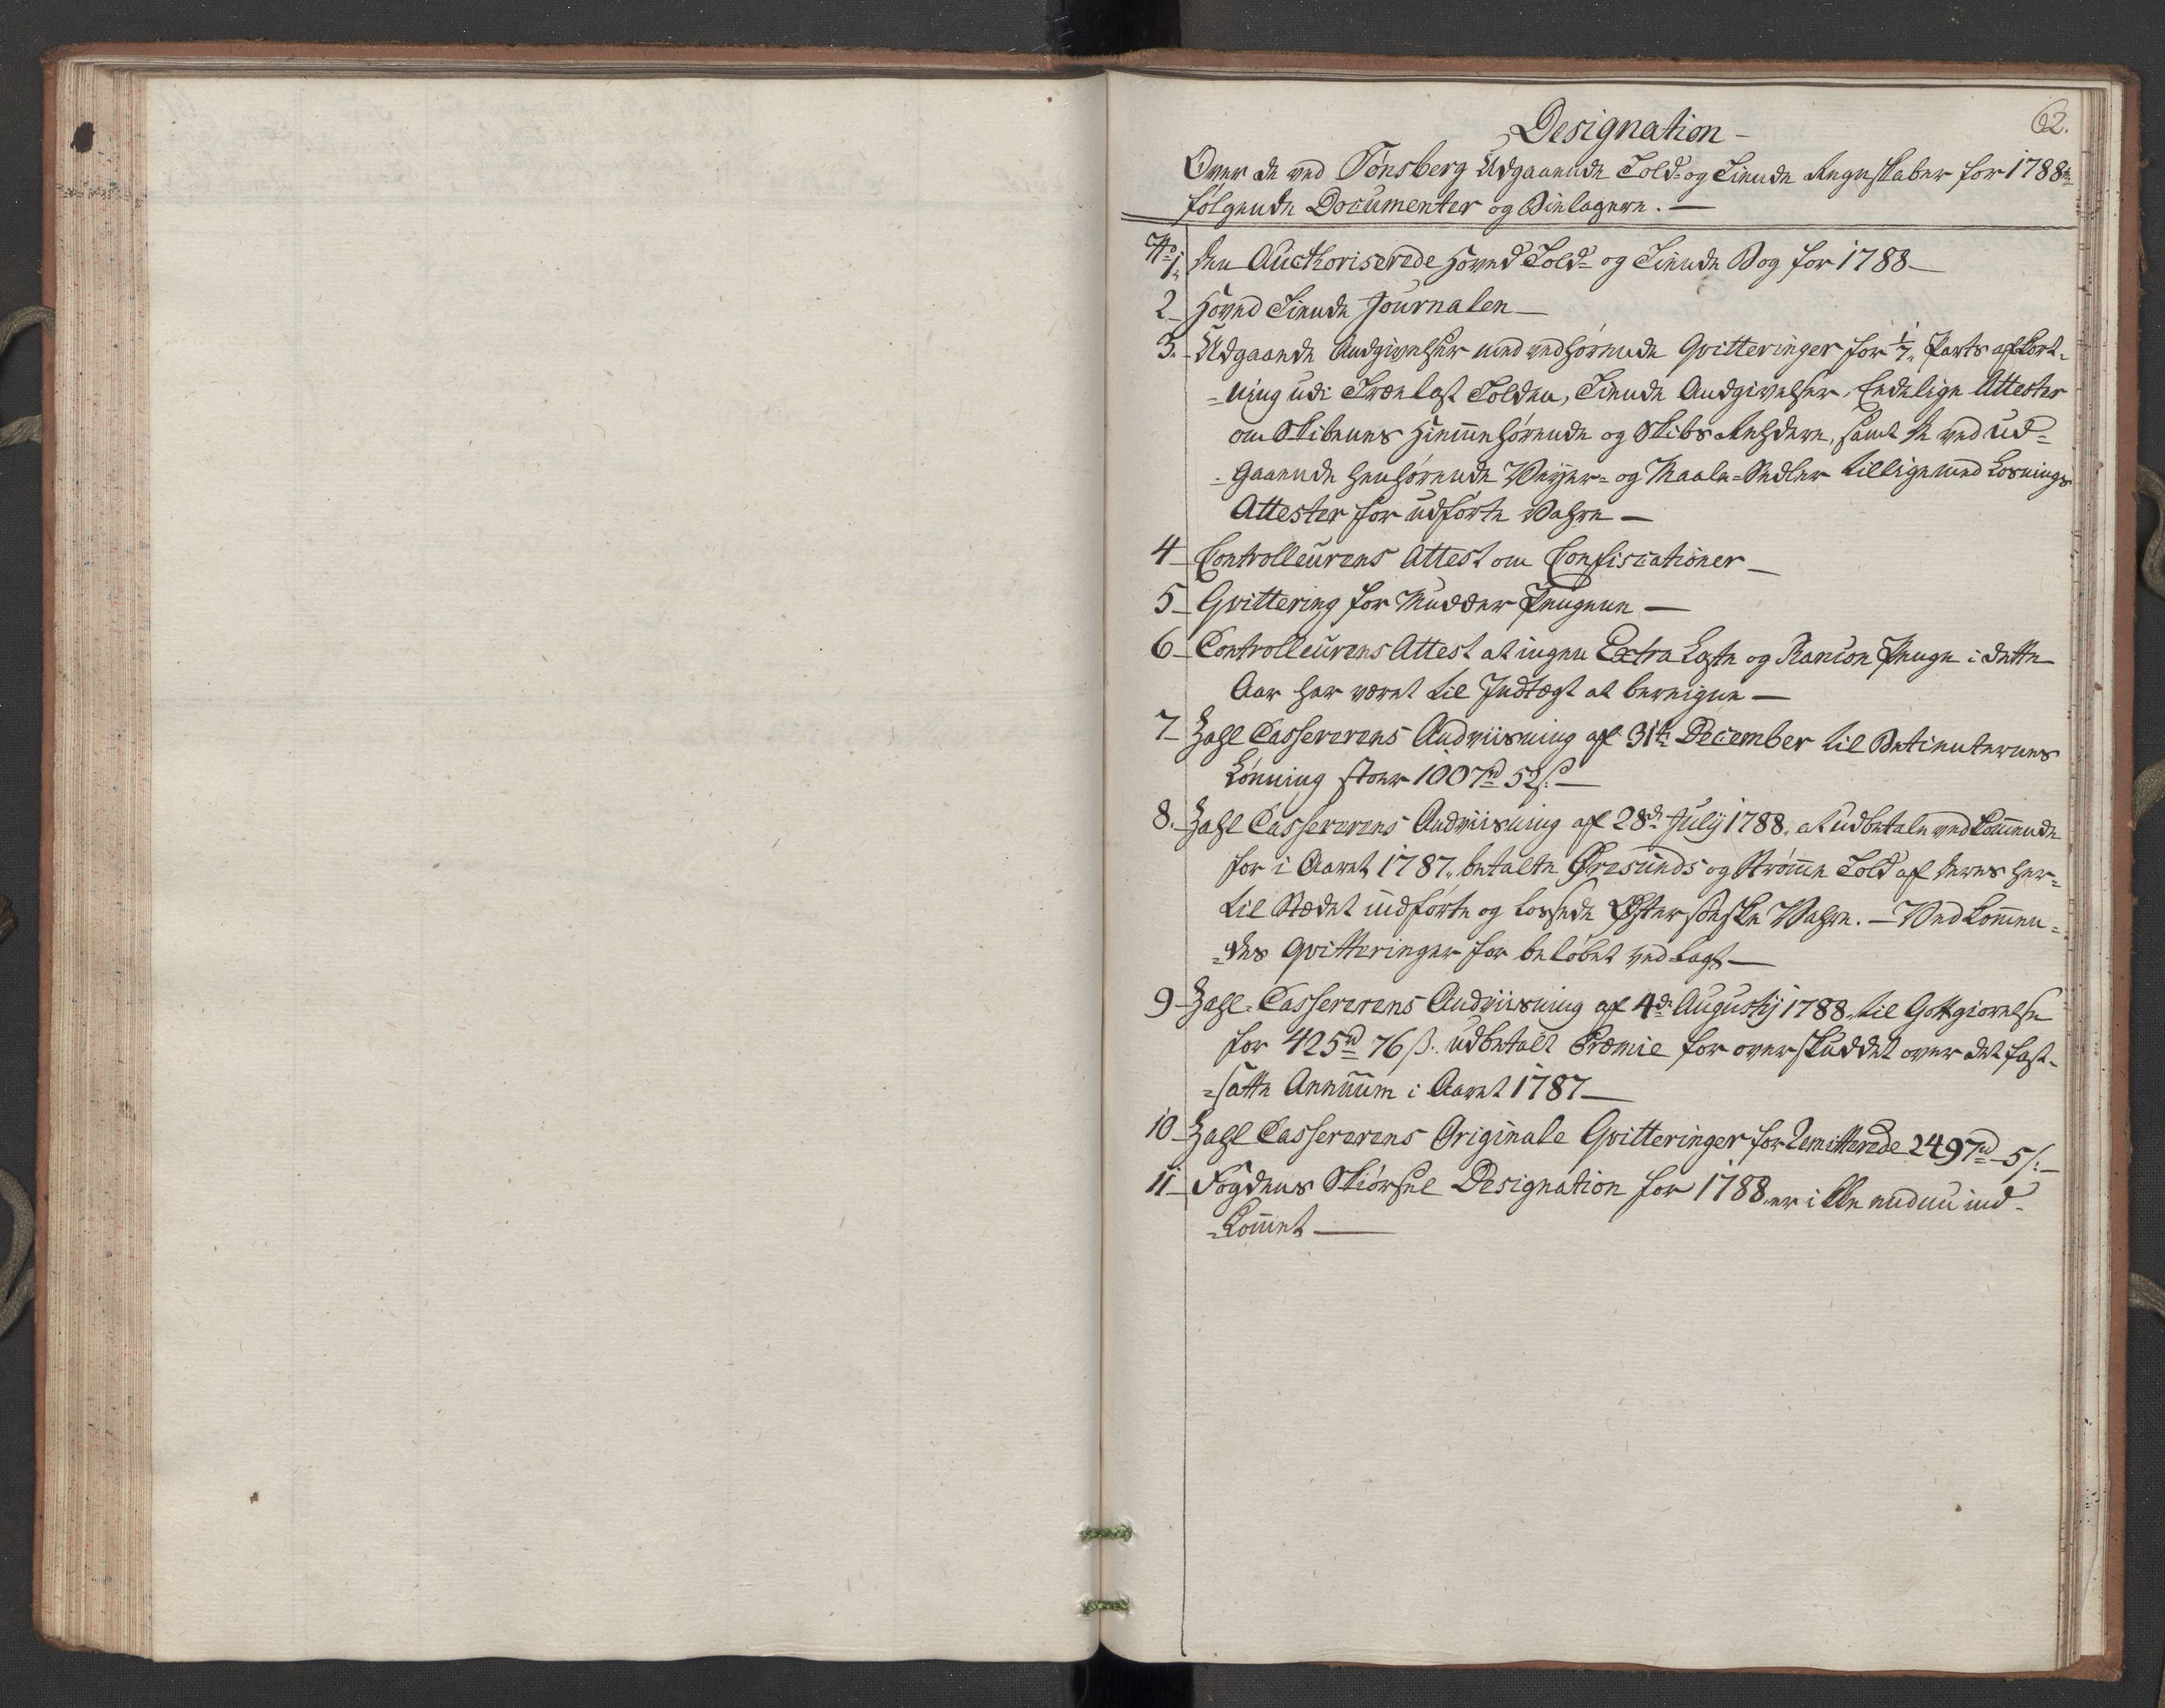 62.
Designation -
Over de ved Tønsberg Udgaaende Told- og Tiende Regnskaber for 1788
følgende Documenter og Bielagere. -
No 1. Den Aucthoriserede Hoved Told- og Tiende Bog for 1788 -
2 - Hoved Tiende Journalen -
3. - Udgaaende Andgivelser med vedhørende Qvitteringer for 1/7 Parts afkort-
-ning udi Trælast Tolden, Tiende Andgivelser, Eedelige Attester
om Skibenes Hiemmehørende og Skibs Rehdere, samt de ved ud-
-gaaende henhørende Veyer- og Maale-Sedler tilligemed Losnings
Attester for udførte Vahre -
4 - Controlleurens Attest om Confiscationer -
5 - Qvittering for Mudder Pengene -
6 - Controlleurens Attest at ingen Extra Laste og Rancon Penge i dette
Aar har været til Indtægt at beregne -
7 - Zahl Cassererens Andviisning af 31te December til Betienternes
Lønning stor 1007rd 52s. -
8. - Zahl Cassererens Andviisning af 28de Julij 1788. at udbetale vedkommende
for i Aaret 1787. betalte Øresunds og Strømme Told af deres her-
til Stædet indførte og lossede Østersøeske Vahre. - Vedkommen-
-des Qvitteringer for beløbet vedlagt -
9 - Zahl-Cassererens Andviisning af 4de Augustij 1788. til Gottgiørelse
for 425rd 76ß. udbetalt Præmie for overskuddet over det fast-
-satte Annuum i Aaret 1787 -
10 - Zahl Cassererens Originale Qvitteringer for Remitterede 2497rd 5s. -
11 - Fogdens Skiørsel Designation for 1788. er ikke endnu ind-
-kommet -